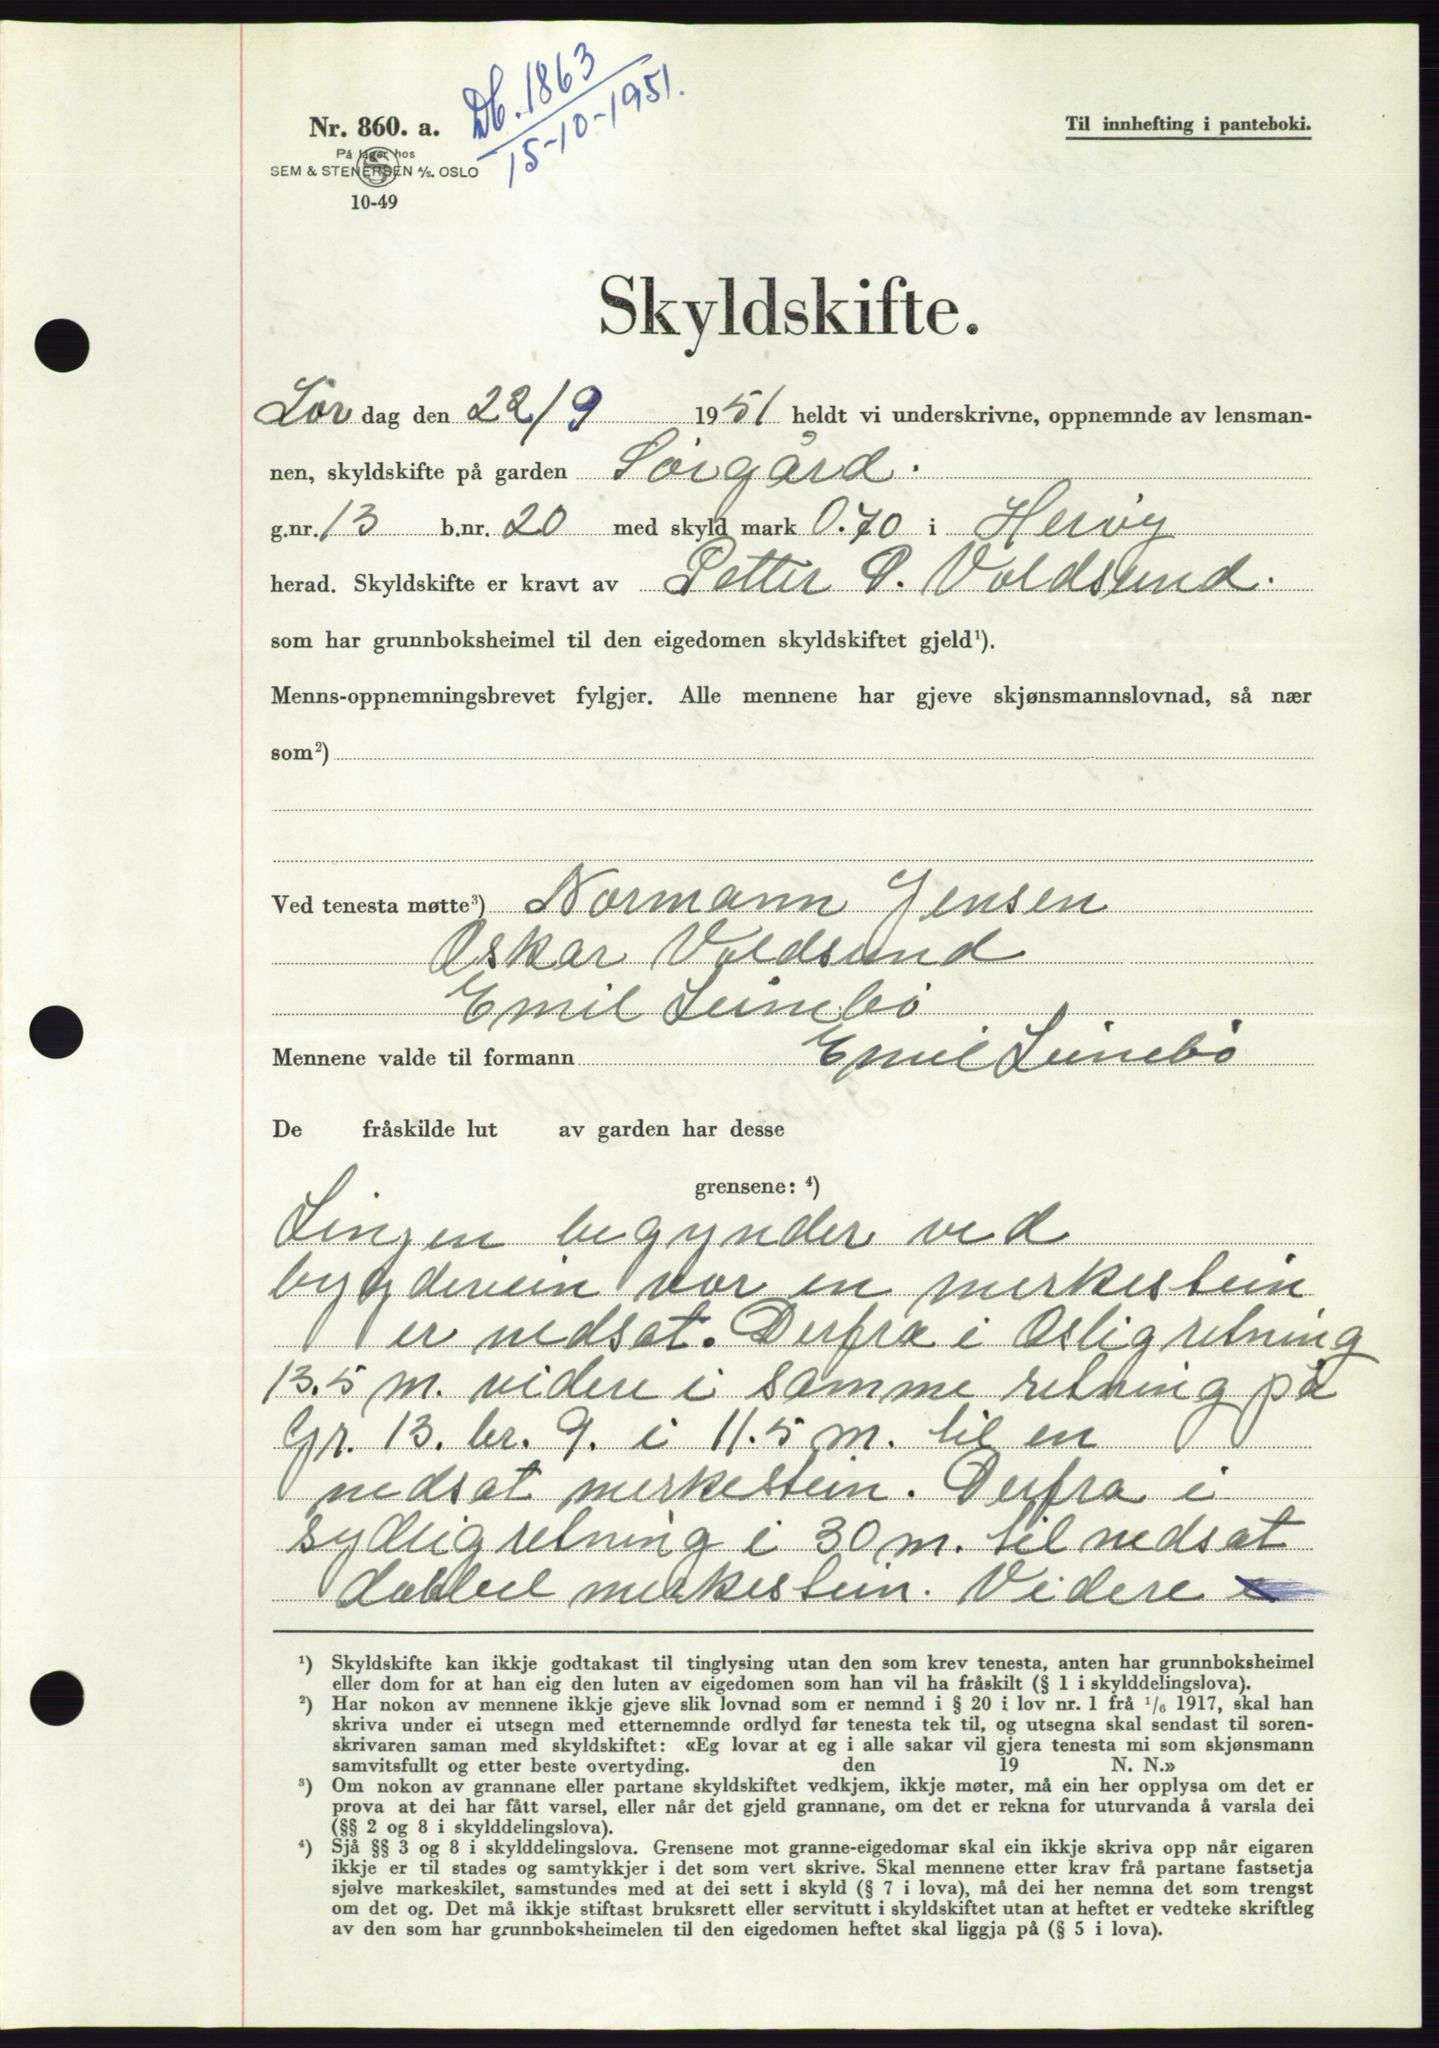 Db. 1863
15-10-1951.
Nr. 860. a.
Til innhefting i panteboki.
På lager hos
SEM & STENERSEN A/S. OSLO
10-49
Skyldskifte.
Lør dag den 22/9 1951 heldt vi underskrivne, oppnemnde av lensman-
nen, skyldskifte på garden Sørgård.
g.nr. 13 b.nr. 20 med skyld mark 0.70 i Herøy
herad. Skyldskifte er kravt av Petter P. Voldsund.
som har grunnboksheimel til den eigedomen skyldskiftet gjeld¹).
Menns-oppnemningsbrevet fylgjer. Alle mennene har gjeve skjønsmannslovnad, så nær
som²)
Ved tenesta møtte³) Normann Jensen
Oskar Voldsund
Emil Leinebø
Mennene valde til formann Emil Leinebø
De fråskilde lut av garden har desse
grensene: ⁴)
Linjen begynder ved
bygdevein vor en merkestein
er nedsat. Derfra i Øslig retning
13.5 m. videre i samme retning på
Gr. 13. br. 9. i 11.5 m. til en
nedsat merkestein. Derfra i
sydlig retning i 30 m. til nedsat
dobbel merkestein. Videre
¹) Skyldskifte kan ikkje godtakast til tinglysing utan den som krev tenesta, anten har grunnboksheimel
eller dom for at han eig den luten av eigedomen som han vil ha fråskilt (§ 1 i skylddelingslova).
²) Har nokon av mennene ikkje gjeve slik lovnad som er nemnd i § 20 i lov nr. 1 frå 1/6 1917, skal han
skriva under ei utsegn med etternemnde ordlyd før tenesta tek til, og utsegna skal sendast til soren-
skrivaren saman med skyldskiftet: «Eg lovar at eg i alle sakar vil gjera tenesta mi som skjønsmann
samvitsfullt og etter beste overtyding. den 19 N. N.»
³) Om nokon av grannane eller partane skyldskiftet vedkjem, ikkje møter, må ein her opplysa om det er
prova at dei har fått varsel, eller når det gjeld grannane, om det er rekna for uturvanda å varsla dei
(§§ 2 og 8 i skylddelingslova).
⁴) Sjå §§ 3 og 8 i skylddelingslova. Grensene mot granne-eigedomar skal ein ikkje skriva opp når eigaren
ikkje er til stades og samtykkjer i det som vert skrive. Skal mennene etter krav frå partane fastsetja
sjølve markeskilet, samstundes med at dei sett i skyld (§ 7 i lova), må dei her nemna det som trengst
om det og. Det må ikkje stiftast bruksrett eller servitutt i skyldskiftet utan at heftet er vedteke skriftleg
av den som har grunnboksheimelen til den eigedomen heftet skal liggja på (§ 5 i lova).